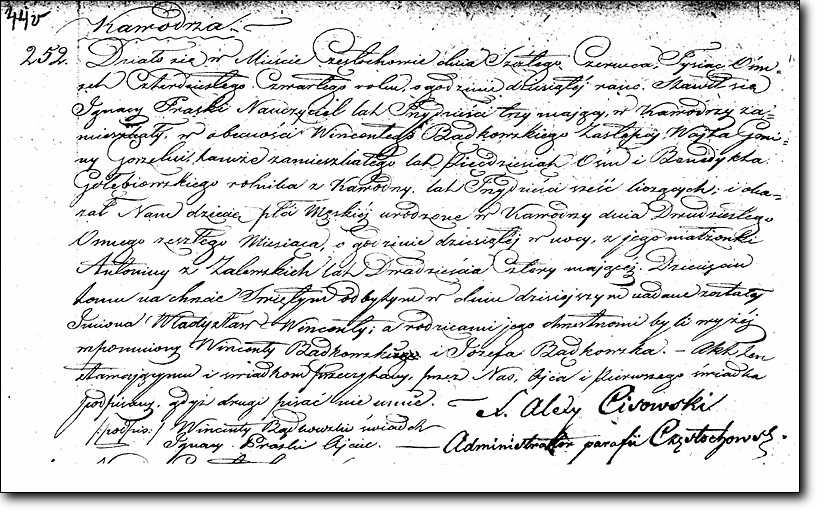 44v
Kawodrza.
252. Działo się w Mieście Częstochowie dnia Szóstego Czerwca, Tysiąc Óśm-
set Czterdziestego Czwartego roku, o godzinie dziesiątéj rano. Stawił się
Ignacy Praski Nauczyciel lat Trzydzieści trzy mający, w Kawodrzy za-
mieszkały, w obecności Wincentego Bądkowskiego Zastępcy Wójta Gmi-
ny Gorzelni, tamże zamieszkałego lat Pięćdziesiąt Óśm i Benedykta
Gołębiowskiego rolnika z Kawodrzy, lat Trzydzieści sześć liczących; i oka-
zał Nam dziecię płci Męzkiéj urodzone w Kawodrzy dnia Dwudziestego
Ósmego zeszłego Miesiąca, o godzinie dziesiątéj w nocy, z jego małżonki
Antoniny z Zalewskich lat Dwadzieścia Cztery mającéj. Dziecięciu
temu na chrzcie Świętym odbytym w dniu dzisiejszym nadane zostały
Imiona Władysław Wincenty; a rodzicami jego chrzestnemi byli wyżéj
wspomniony Wincenty Bądkowski i Józefa Bądkowska. — Akt ten
stawającemu i świadkom przeczytany, przez Nas, Ojca i pierwszego świadka
podpisany, gdyż drugi pisać nie umie. — X. Alexy Cisowski
/:podpis:/ Wincenty Bądkowski świadek
Ignacy Praski Ojciec. — Administrator parafii Częstochows.